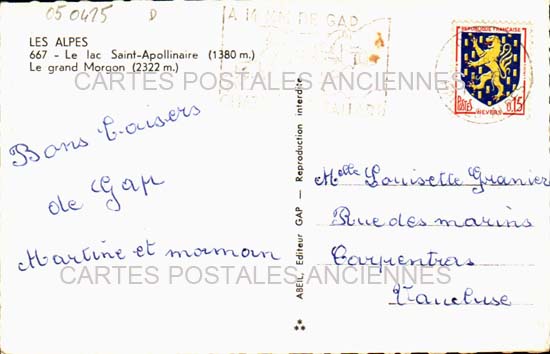 050415 D
LES ALPES
667 - Le lac Saint-Apollinaire (1380 m.)
Le grand Morgon (2322 m.)
CARTES POSTALES ANCIENNES
Bons baisers
de Gap
Martine et maman
CARTES POSTALES ANCIENNES
ABEIL, Editeur GAP — Reproduction interdite
DE GAP
REPUBLIQUE FRANÇAISE
POSTES 0,15
NEVERS
Melle Louisette Granier
Rue des marins
Carpentras
Vaucluse